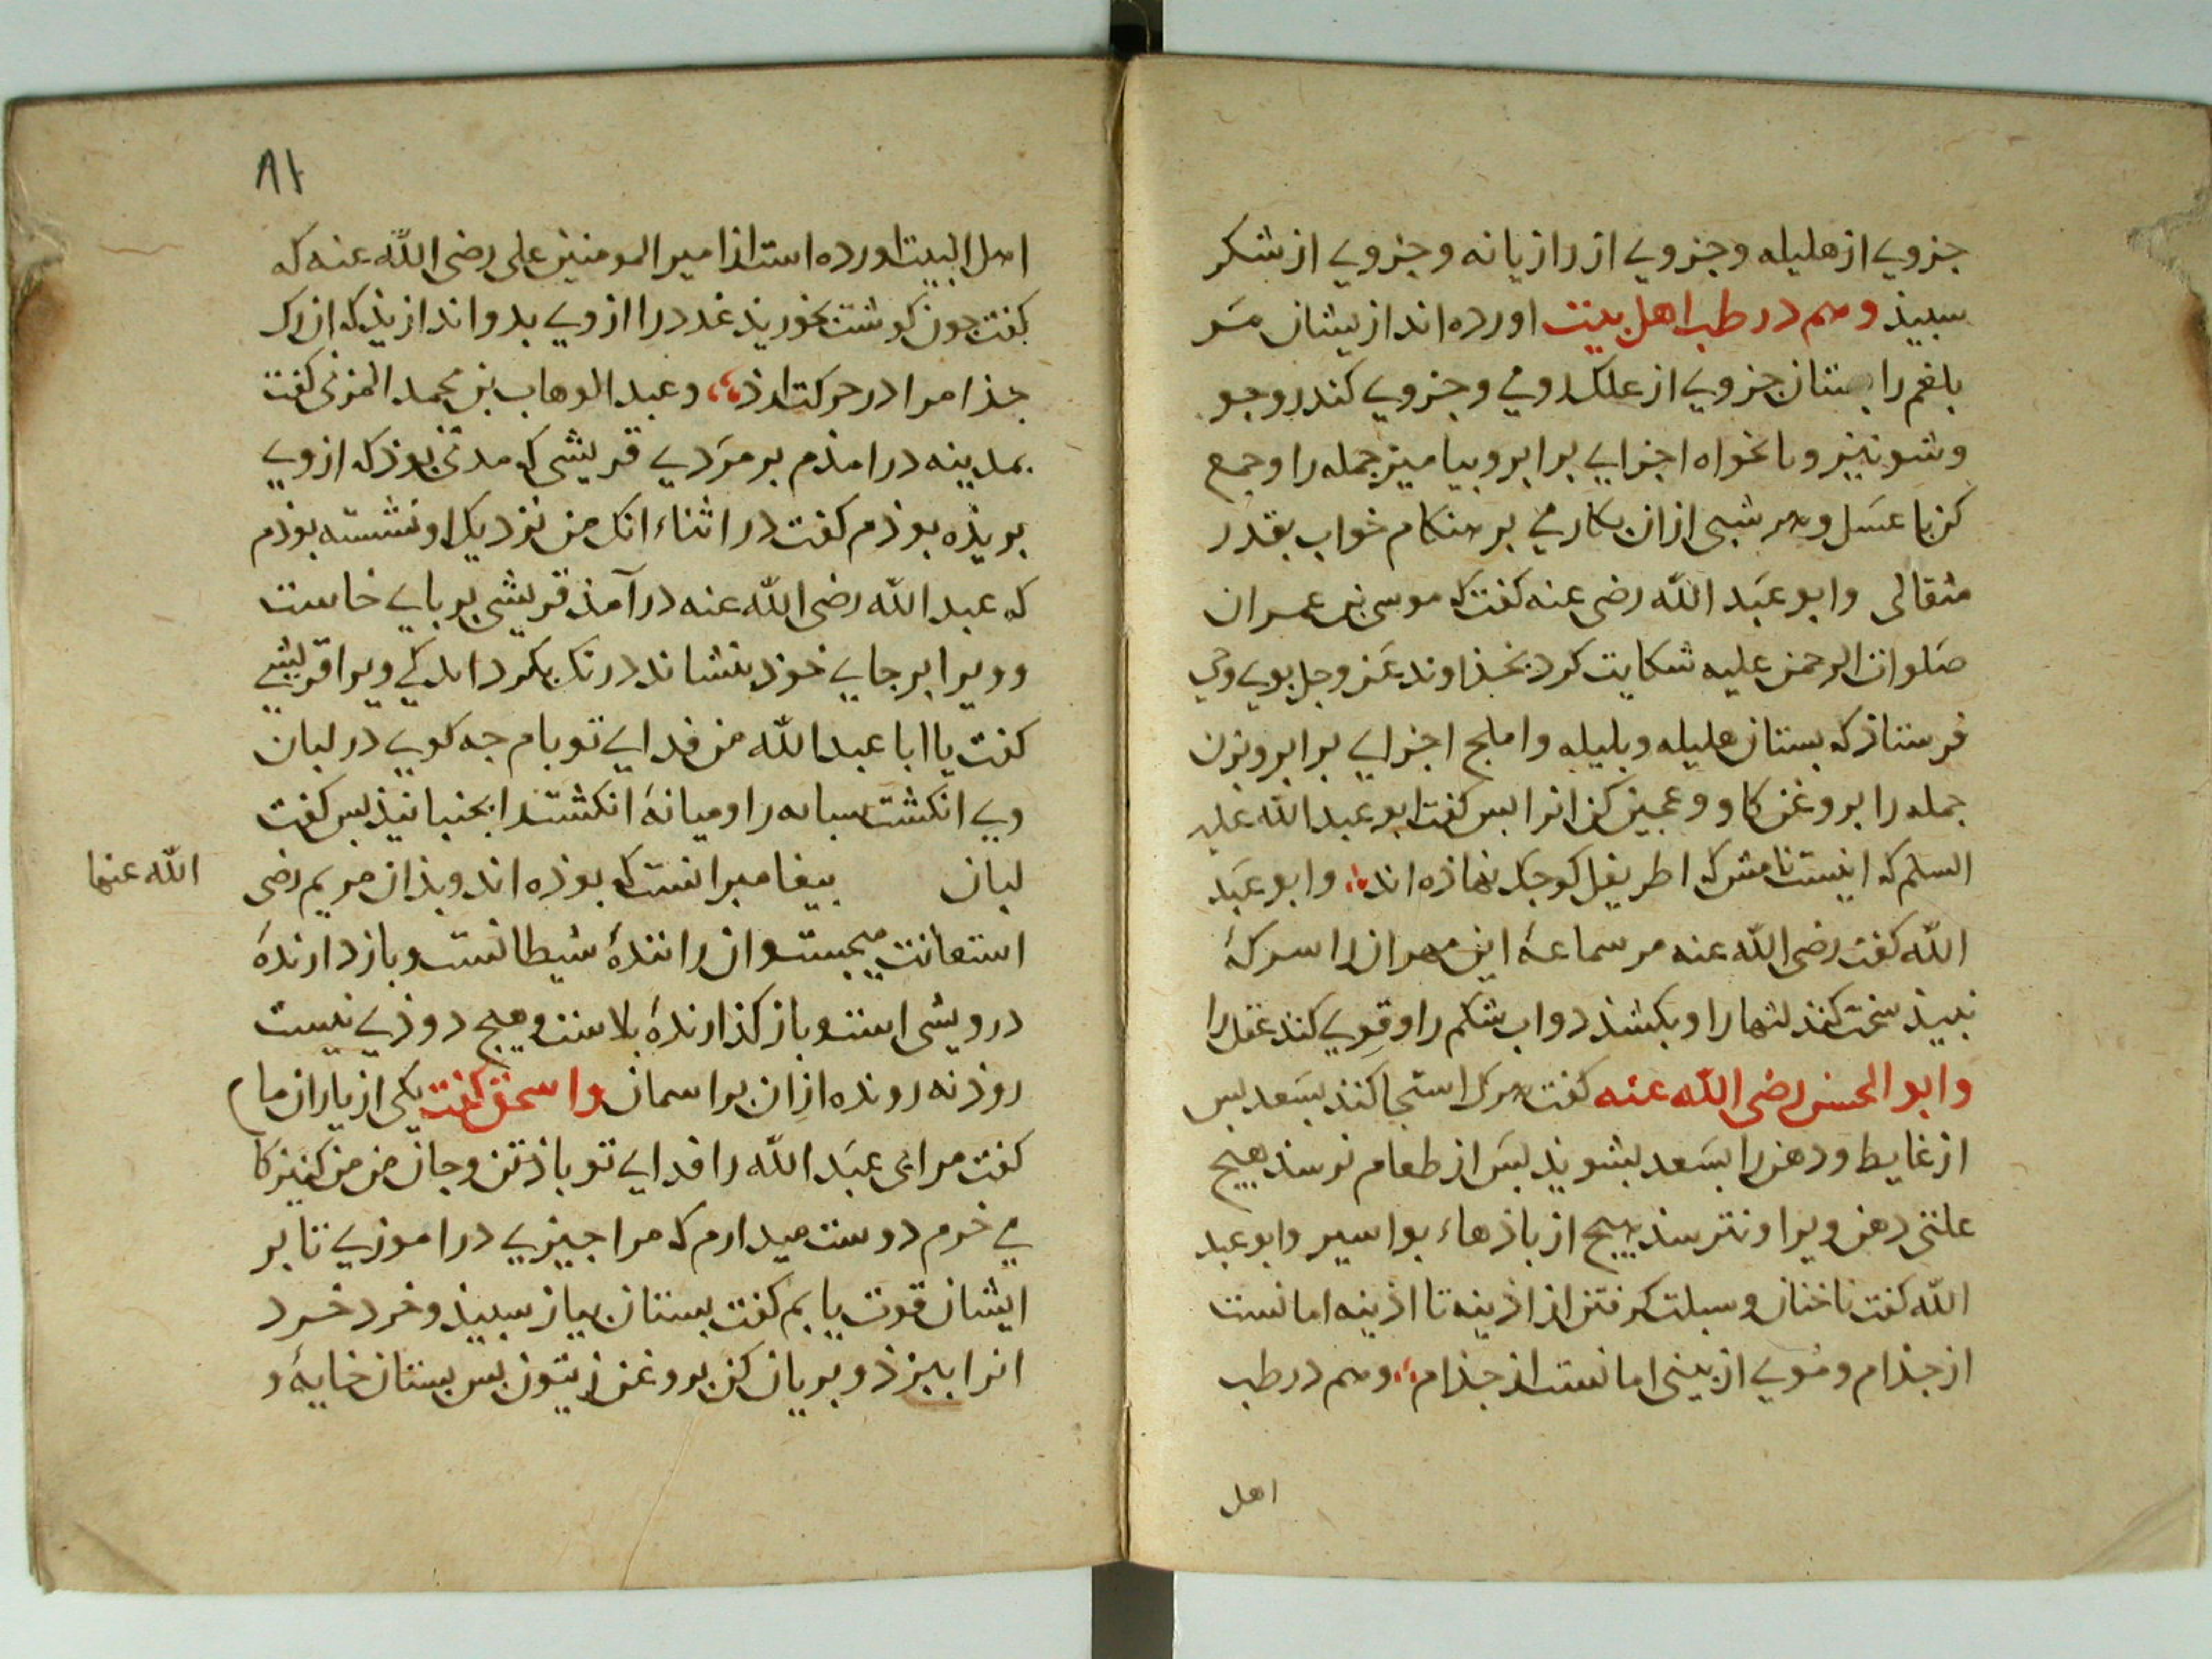 جزوي از هليله وجزوي از رازيانه وجزوي از شكر
سبيذ وهم در طب اهل بيت اورده اند از يشان مر
بلغم را بستان جزوي از علك رومي وجزوي كندر وجو
وشونيز وناخواه اجزايي برابر وبياميز جمله را وجمع
كن با عسل وهر شبى ازان بكار مي بر هنكام خواب بقدر
مثقالى وابو عبد الله رضى عنه كفت كه موسى بن عمران
صلوات الرحمن عليه شكايت كرد بخذاوند عز وجل بوي وحي
فرستاذ كه بستان هليله وبليله واملج اجزايي برابر وبزن
جمله را بروغن كاو وعجين كن انرا بس كفت ابو عبد الله عليه
السلم كه اينست نامش كه اطريفل كوجك نهاذه اند وابو عبد
الله كفت رضى الله عنه مر سماعة ابن مهران را سركهٔ
نبيذ سخت كند لثها را وبكشذ دواب شكم را وقوي كند عقل را
وابو الحسن رضى الله عنه كفت هرك استنجا كند بسعد بس
از غايط ودهن را بسعد بشويذ بس از طعام نرسذ هيج
علتى دهن ويرا ونترسذ هيج از باذهاء بواسير وابو عبد
الله كفت ناخنان وسبلت كرفتن از اذينه تا اذينه امانست
از جذام ومُوي از بينى امانست از جذام وهم در طب
اهل
٨١
اهل البيت اورده است از امير المومنين على رضى الله عنه كه
كفت جون كوشت بخوريذ غدد را ازوي بدور اندازيذ كه ان رك
جذام را در حركت ارذ وعبد الوهاب بن محمد المزنى كفت
بمدينه در امذم بر مردي قريشى كه مدتى بوذ كه ازوي
بريذه بوذم كفت در اثناء انك من نزديك او نشسته بوذم
كه عبد الله رضى الله عنه در آمذ قريشى بر باي خاست
وويرا بر جاي خوذ بنشاند درنك بكرد اندكي ويرا قريشي
كفت يا ابا عبد الله من فداي تو بام جه كويي در لبان
وي انكشت سبابه را وميانهٔ انكشت را بجنبانيذ بس كفت
لبان بيغامبرانست كه بوذه اند وبذان مريم رضى
الله عنها
استعانت ميجست وان رانندهٔ شيطانست وباز دارندهٔ
درويشى است وباز كذارندهٔ بلاست وهيج دوذي نيست
روذنه رونده ازان بر اسمان واسحق كفت يكى از ياران ما
كفت مرابى عبد الله را فداي تو باذ تن وجان من من كنيزكا
مي خرم دوست ميدارم كه مرا جيزي در اموزي تا بر
ايشان قوت يابم كفت بستان بياز سبيذ وخرد خرد
انرا ببز وبريان كن بروغن زيتون بس بستان خايهٔ و